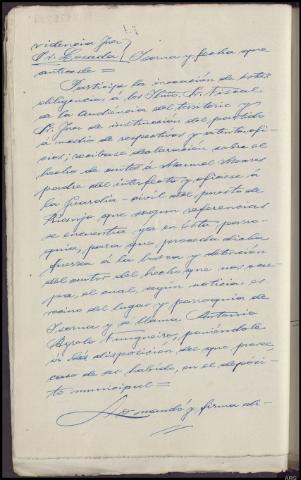 videncia Juez
Sr. Lozada } Iserna y fecha que
antecede =
Participe la incoación de estas
diligencias á los Iltmo. Sr. Fiscal
de la audiencia del territorio y
Sr. Juez de instrucción del partido
a medio de respectivos y atentos ofi-
cios; recibase declaración sobre el
hecho de autos á Manuel
padre del interfecto y ofíciese á
la Guardia-civil del puesto de
Rianjo que segun referencias
se encuentra ya en esta parro-
quia, para que proceda dicha
fuerza á la busca y detención
del autor del hecho que nos ocu-
pa, el cual, según noticias es
vecino del lugar y parroquia de
Iserna y se llama Antonio
poniéndole
á disposición del que parece
caso de ser habido, en el depósi-
to municipal =
Lo mandó y firma di-